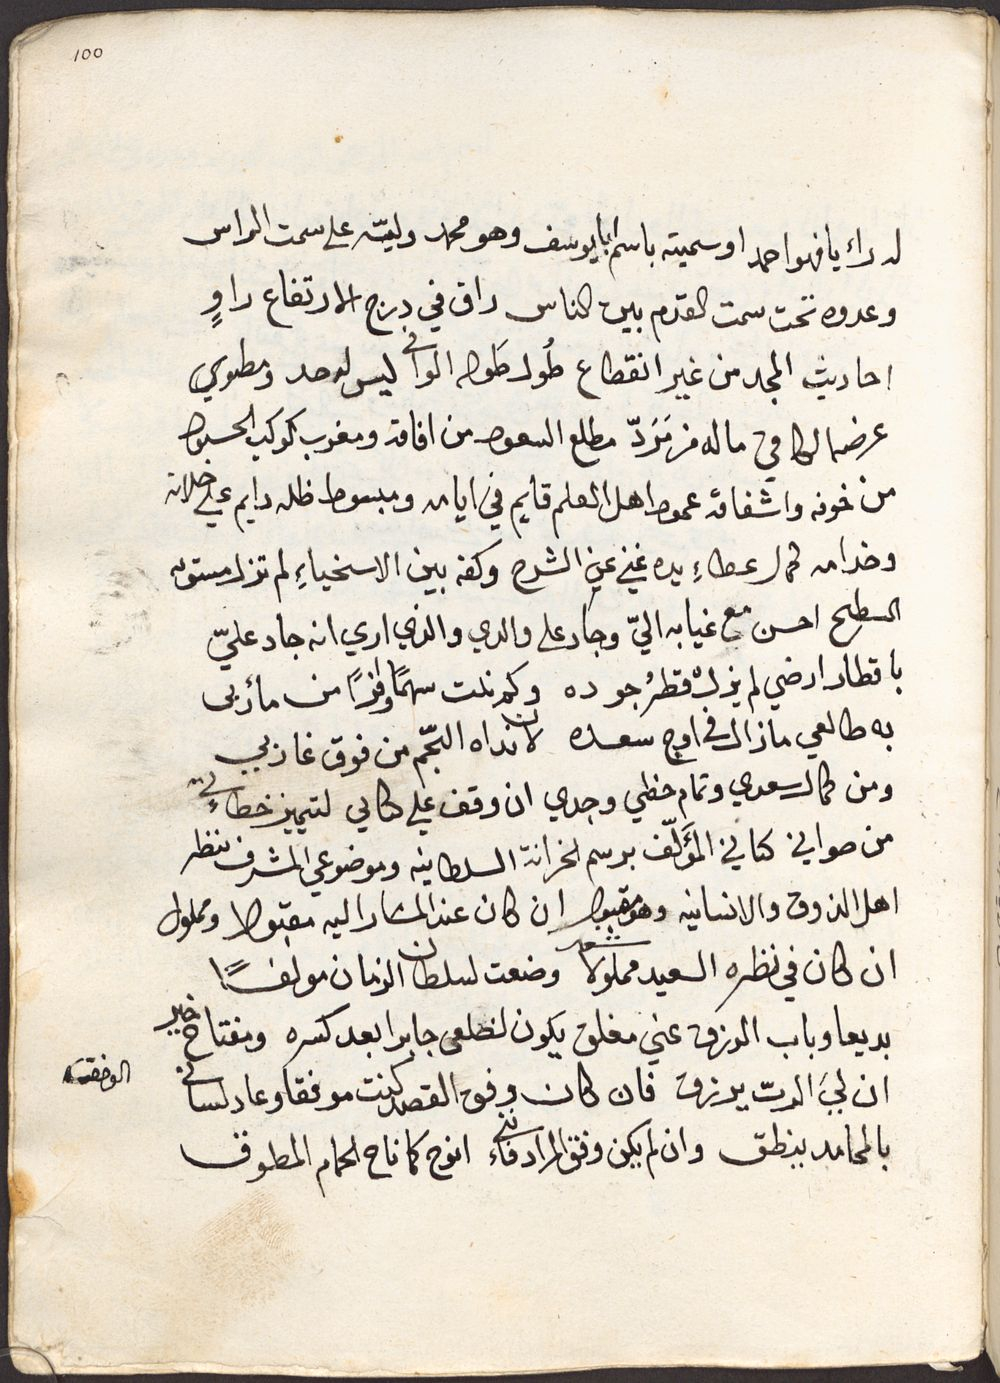 100
له راء يا فهو احمد او سميته باسم ابا يوسف وهو محمد وليته على سمت الراس
وعدوه تحت سمت القدم بين الناس راق في درج الارتفاع راوٍ
احاديث المجد من غير انقطاع طُول طَوله الوافي ليس له حد ومطوي
عرضه الكافي ماله من مَرَدّ مطلع السعود من افاقه ومغرب كوكب الحسود
من خوفه واشفاقه عمود اهل العلم قايم في ايامه ومبسوط ظله دايم على خلانه
وخدامه كمال عطاءِ يده غني عن الشرح وكفه بين الاسخياءِ لم تزل مستوية
السطح احسن مع غيابه اليّ وجاد على والدي والذي اري انه جاد عليّ
باقطار ارضي لم يزل قطرُ جوده وكم نلت سهمًا وافرًا من مأربى
به طالعي مازال في اوج سعده لان نداه الجمّ من فوق غاربي
ومن كمال سعدي وتمام حظي وجدي ان وقف على كتابي لتمييز خطاءي
من صوابي كتابي المؤَلَّف برسم الخزانة السلطانيه وموضوعي المشرف بنظر
اهل الذوق والانسانيه وهو مقبول ان كان عند المشار اليه مقبولا ومملول
ان كان في نظره السعيد مملولا شعر وضعت لسلطان الزمان مولفًا
بديعا وباب الرزق عني مغلق يكون لضلعى جابرا بعد كسره ومفتاح خير
ان لي الربّ يرزق فان كان وفق القصد كنت موفقا وعاد لساني
بالمحامد ينطق وان لم يكن وفق المراد فاءنني انوح كما ناح الحمام المطوق